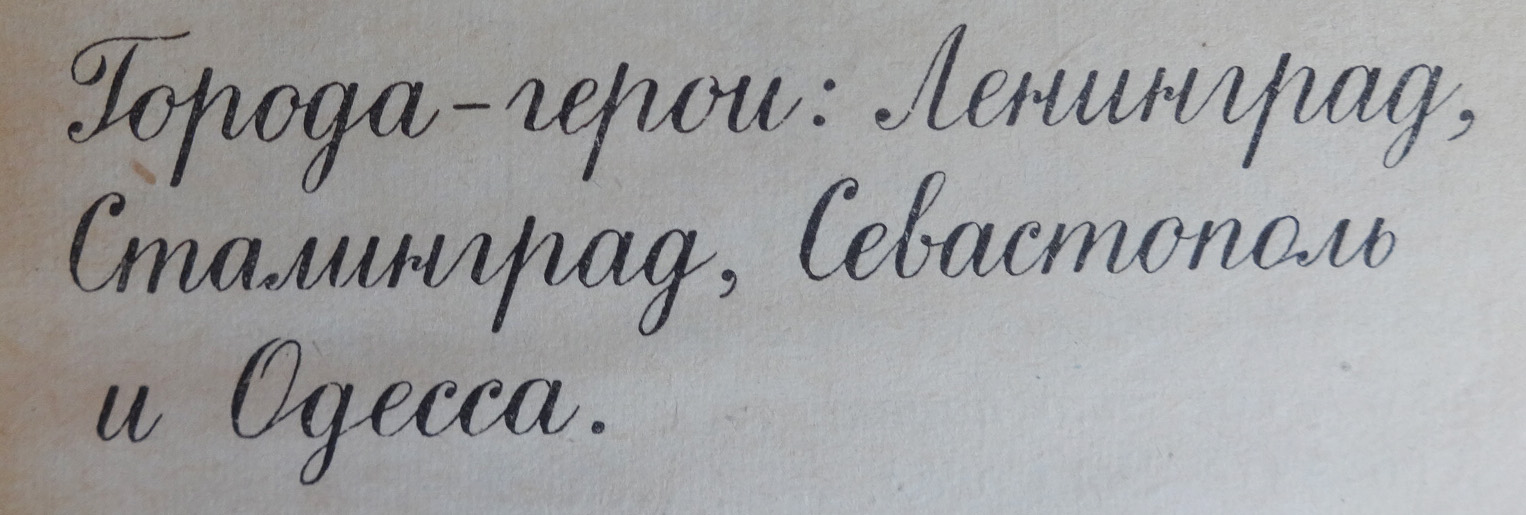 Города-герои: Ленинград,
Сталинград, Севастополь
и Одесса.